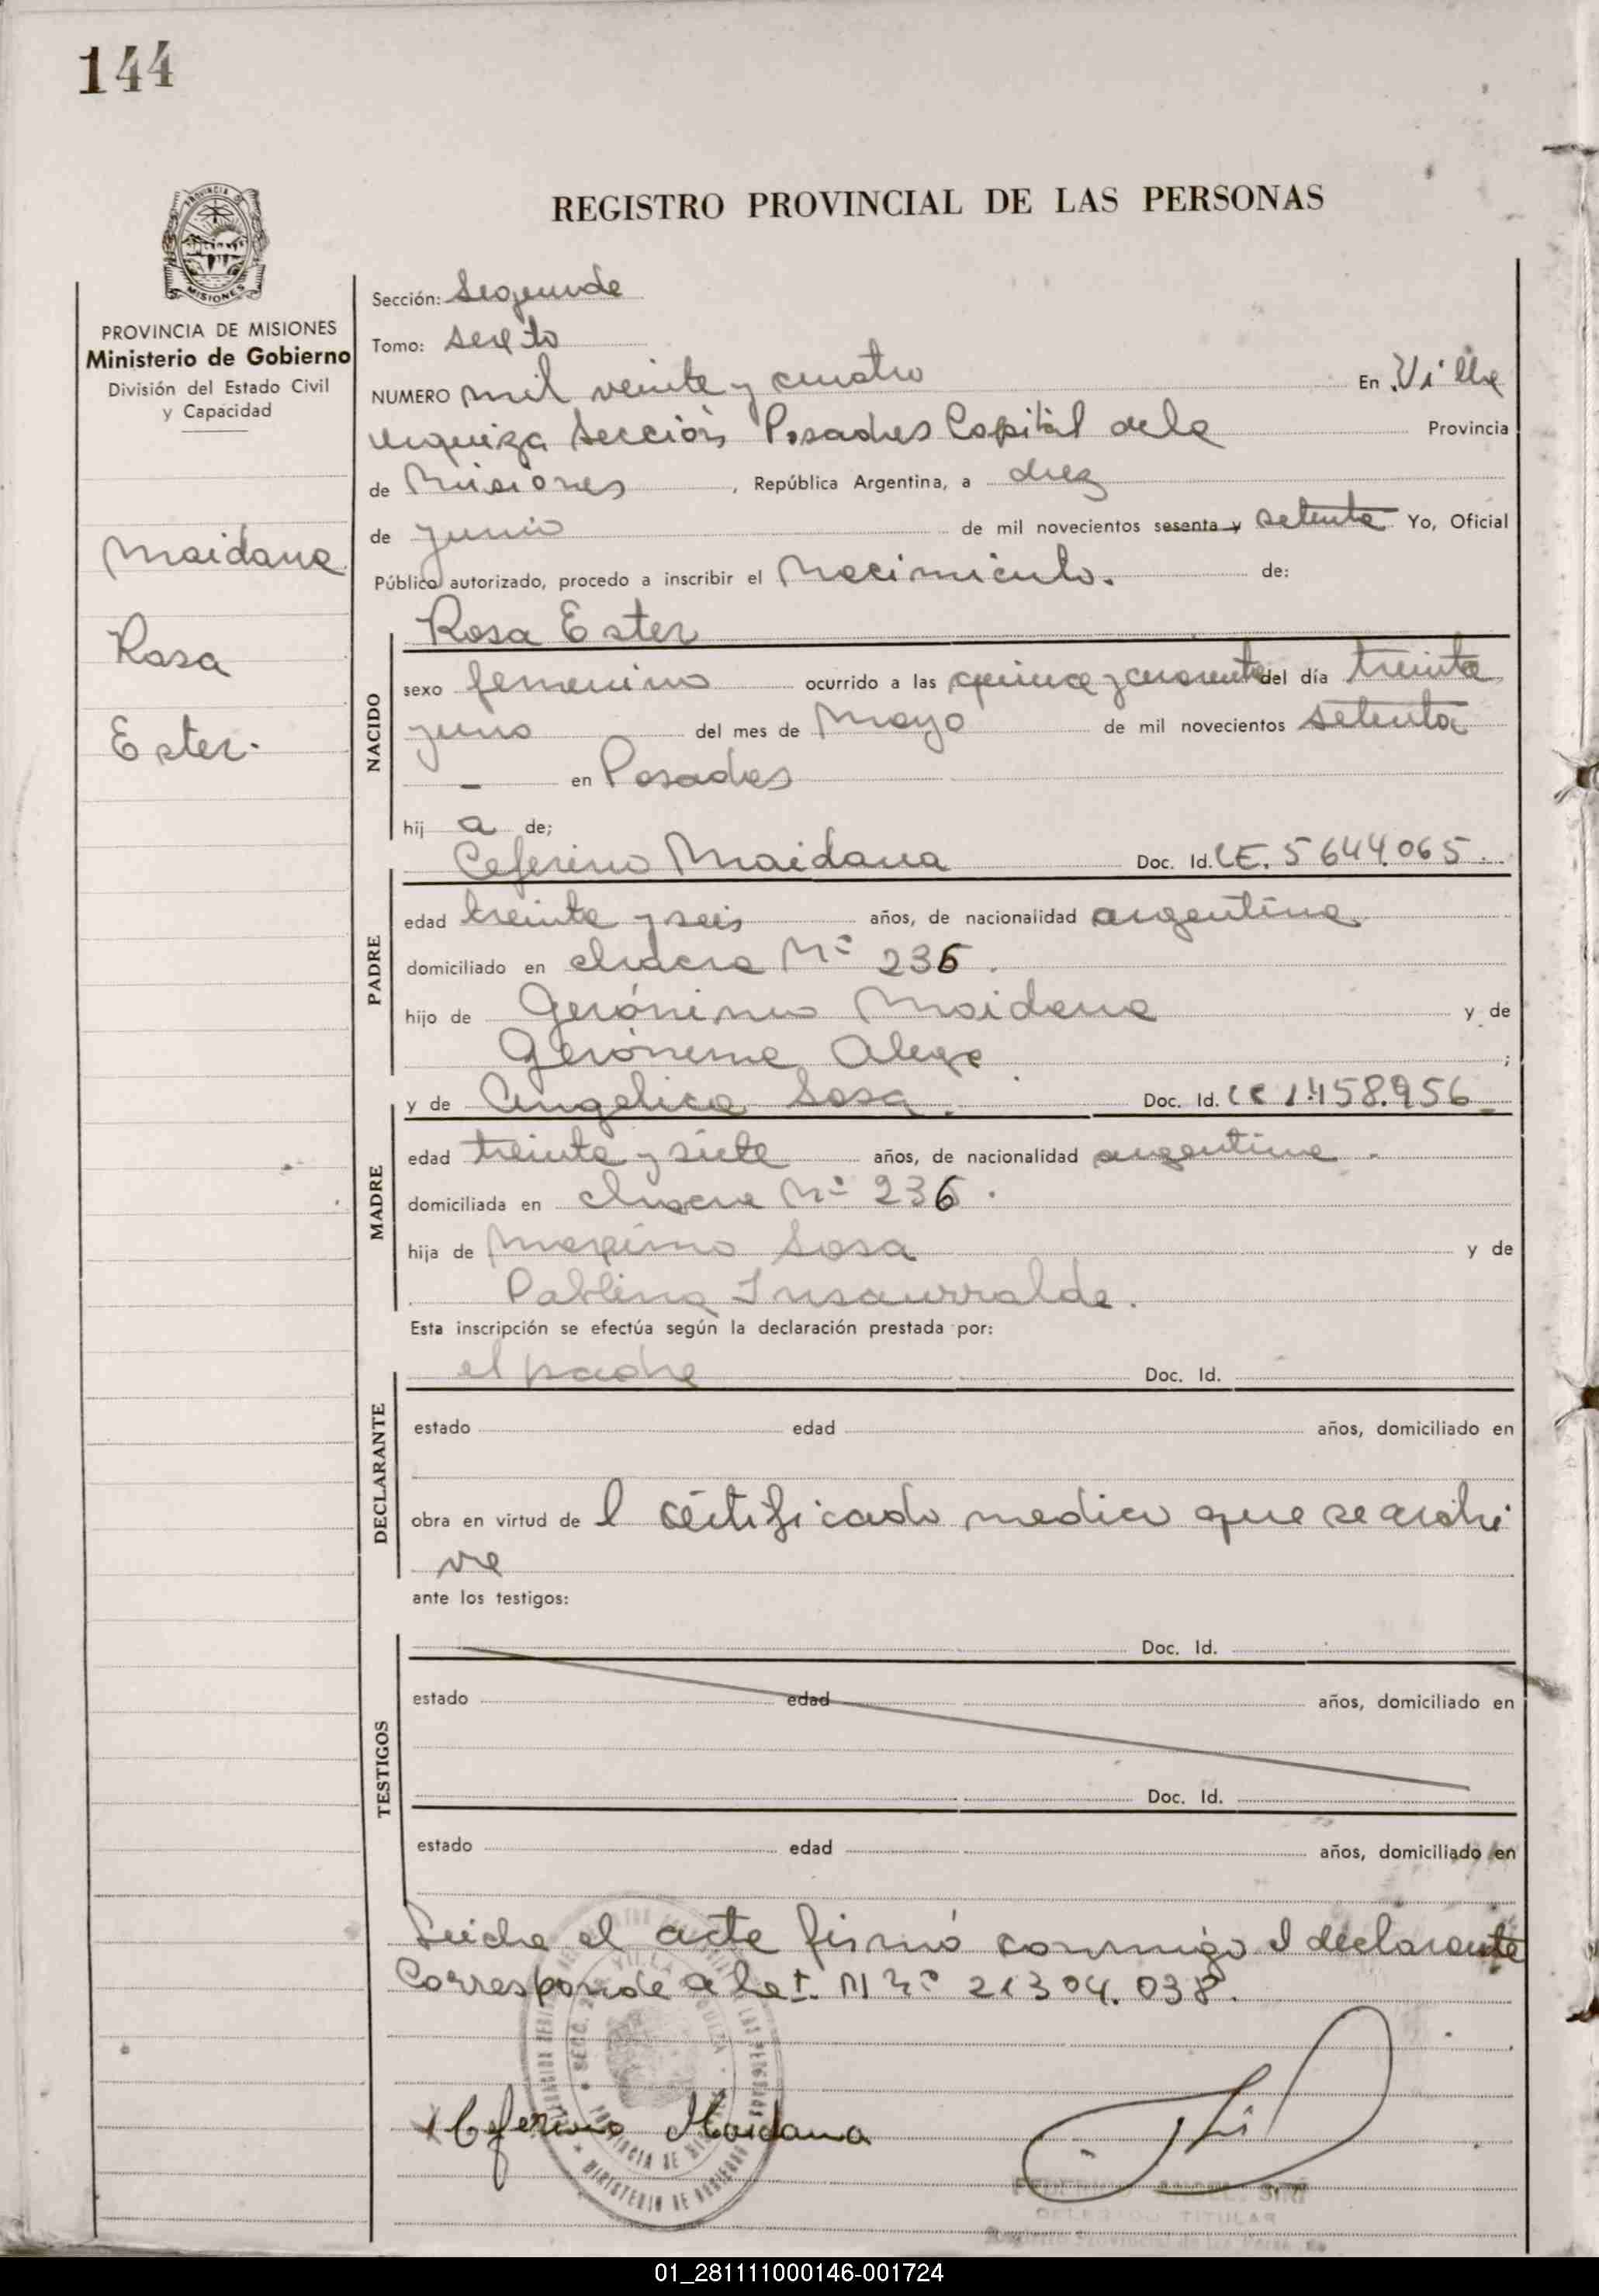 144
REGISTRO PROVINCIAL DE LAS PERSONAS
PROVINCIA DE MISIONES
MISIONES
PROVINCIA DE MISIONES
Ministerio de Gobierno
División del Estado Civil
y Capacidad
Maidana
Rosa
Ester.
Sección: Segunda
Tomo: Sexto
NUMERO mil veinte y cuatro En Villa
urquiza Sección Posadas Capital de la Provincia
de Misiones, República Argentina, a diez
de junio de mil novecientos sesenta y setenta Yo, Oficial
Público autorizado, procedo a inscribir el Nacimiento. de:
Rosa Ester
NACIDO
sexo femenino ocurrido a las quince y cuarenta del día treinta
y uno del mes de Mayo de mil novecientos setenta
— en Posadas
hij a de;
Ceferino Maidana Doc. Id. LE. 5644.065.
PADRE
edad treinta y seis años, de nacionalidad argentina
domiciliado en chacra Nº 236.
hijo de Gerónimo Maidana y de
Gerónima ;
y de Angelica Sosa. Doc. Id. LC 1.458.956
MADRE
edad treinta y siete años, de nacionalidad argentina.
domiciliada en chacra Nº 236.
hija de Maximo Sosa y de
Pablina Insaurralde.
Esta inscripción se efectúa según la declaración prestada por:
el padre Doc. Id.
DECLARANTE
estado edad años, domiciliado en
obra en virtud de l certificado medico que se archi
va
ante los testigos:
Doc. Id.
TESTIGOS
estado edad años, domiciliado en
Doc. Id.
estado edad años, domiciliado en
el acta firmó conmigo el declarante
Corresponde a la M Nº 21304.038.
Ceferino Maidana
FEDERICO ANGEL SIRI
DELEGADO TITULAR
Registro Provincial de las Personas
01_281111000146-001724